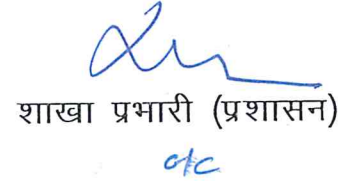 शाखा प्रभारी (प्रशासन)
o/c